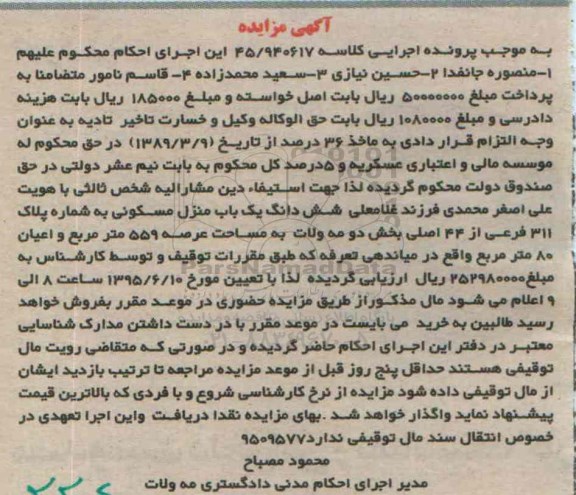 آگهی مزایده
به موجب پرونده اجرایی کلاسه ۴۵/۹۴۰۶۱۷ این اجرای احکام محکوم علیهم
۱-منصوره جانفدا ۲-حسین نیازی ۳-سعید محمدزاده ۴- قاسم نامور متضامنا به
پرداخت مبلغ ۵۰۰۰۰۰۰۰ ریال بابت اصل خواسته و مبلغ ۱۸۵۰۰۰ ریال بابت هزینه
دادرسی و مبلغ ۱۰۸۰۰۰۰ ریال بابت حق الوکاله وکیل و خسارت تاخیر تادیه به عنوان
وجه التزام قرار دادی به ماخذ ۳۶ درصد از تاریخ (۱۳۸۹/۳/۹) در حق محکوم له
موسسه مالی و اعتباری عسکریه و ۵درصد کل محکوم به بابت نیم عشر دولتی در حق
صندوق دولت محکوم گردیده لذا جهت استیفاء دین مشارالیه شخص ثالثی با هویت
علی اصغر محمدی فرزند غلامعلی شش دانگ یک باب منزل مسکونی به شماره پلاک
۳۱۱ فرعی از ۴۴ اصلی بخش دو مه ولات به مساحت عرصه ۵۵۹ متر مربع و اعیان
۸۰ متر مربع واقع در میاندهی تعرفه که طبق مقررات توقیف و توسط کارشناس به
مبلغ۲۵۲۹۸۰۰۰۰ ریال ارزیابی گردیده لذا با تعیین مورخ ۱۳۹۵/۶/۱۰ ساعت ۸ الی
۹ اعلام می شود مال مذکوراز طریق مزایده حضوری در موعد مقرر بفروش خواهد
رسید طالبین به خرید می بایست در موعد مقرر با در دست داشتن مدارک شناسایی
معتبر در دفتر این اجرای احکام حاضر گردیده و در صورتی که متقاضی رویت مال
توقیفی هستند حداقل پنج روز قبل از موعد مزایده مراجعه تا ترتیب بازدید ایشان
از مال توقیفی داده شود مزایده از نرخ کارشناسی شروع و با فردی که بالاترین قیمت
پیشنهاد نماید واگذار خواهد شد .بهای مزایده نقدا دریافت واین اجرا تعهدی در
خصوص انتقال سند مال توقیفی ندارد۹۵۰۹۵۷۷
محمود مصباح
مدیر اجرای احکام مدنی دادگستری مه ولات
ParsNamadData